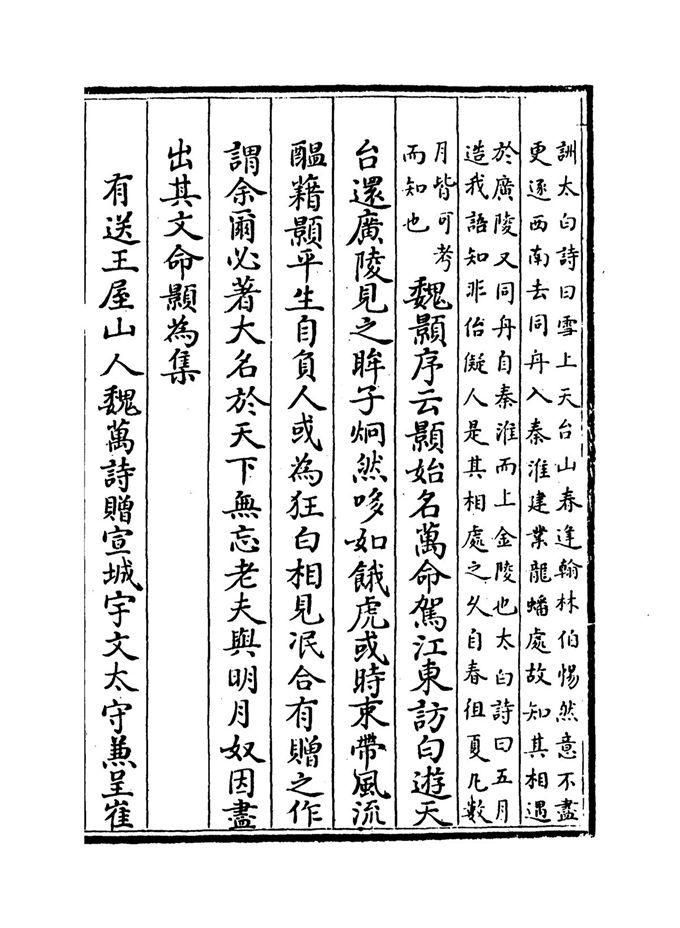 訓太白詩曰雪上天台山春逢翰林伯惕然意不盡
更逐西南去同舟入秦淮建業龍蟠處故知其相遇
於廣陵又同舟自秦淮而上金陵也太白詩曰五月
造我語知非佁儗人是其相處之久自春徂夏凡數
月皆可考
而知也
魏顥序云顥始名萬命駕江東訪白遊天
台還廣陵見之眸子炯然哆如餓虎或時束帶風流
醞籍顥平生自負人或為狂白相見泯合有贈之作
謂余爾必著大名於天下無忘老夫與明月奴因盡
出其文命顥為集
有送王屋山人魏萬詩贈宣城宇文太守兼呈崔